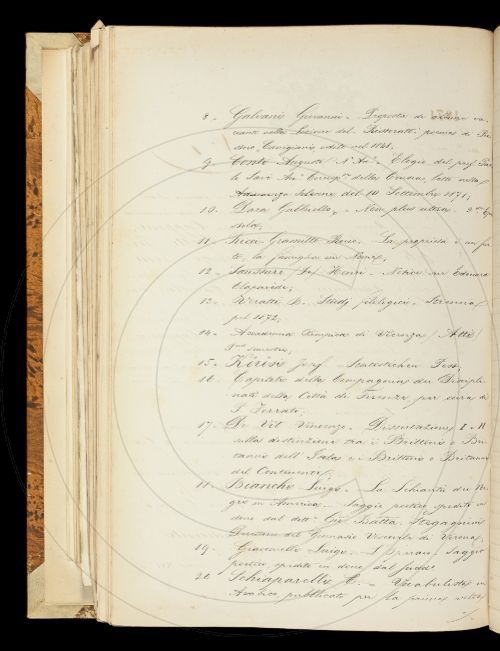 8. Galvani Giovanni - Proposta di alcune va-
rianti nella lezione del Ristorato, poema di Ri-
storo Canigiani, edito nel 1848;
9. Conti Augusto - Elogio del prof.
Adunanza solenne del 10 Settembre 1871;
10. Dara Gabriello, - Non plus ultra.
11. Ricci Gramitto Rocco. La proprietà
te, la famiglia
12. Saussure Henri - Notice sur Edouard
Claparède;
13. Veratti B. Studj filologici - Strenna
pel 1872;
14. Accademia Olimpica di Vicenza (Atti)
semestre;
15. Körösi Josef -
16. Capitoli della Compagnia dei Discipli-
nati della Città di Firenze, per cura di
P. Ferrato;
17. De Vit Vincenzo. Dissertazione I e II
sulla distinzione tra i Brittoni o Bri-
tanni dell' Isola e i Brittoni o Britanni
del Continente;
18. Bianchi Luigi. La Schiavitù dei Ne-
gri in America - Saggio poetico spedito in
dono dal dott. Gio Batta.
Direttore del Ginnasio Vescovile di Verona;
19. Giacomelli Luigi - Saggio
poetico spedito in dono dal
20. Schiaparelli C. - Vocabulista in
Arabico pubblicato per la prima volta